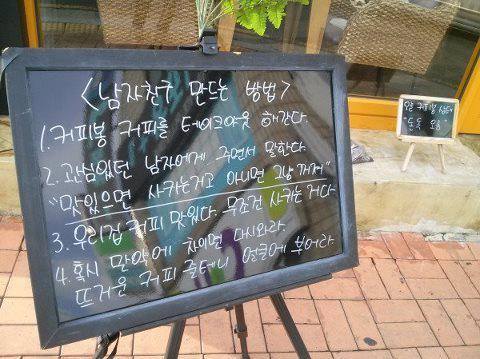 <남자친구 만드는 방법>
1. 커피봉 커피를 테이크아웃 해간다.
2. 관심있던 남자에게 주면서 말한다.
"맛있으면 사귀는거고 아니면 그냥 꺼져"
3. 우리집 커피 맛있다. 무조건 사귀는 거다.
4. 혹시 만약에 차이면 다시와라.
뜨거운 커피 줄테니 얼굴에 부어라.
오늘 커피봉